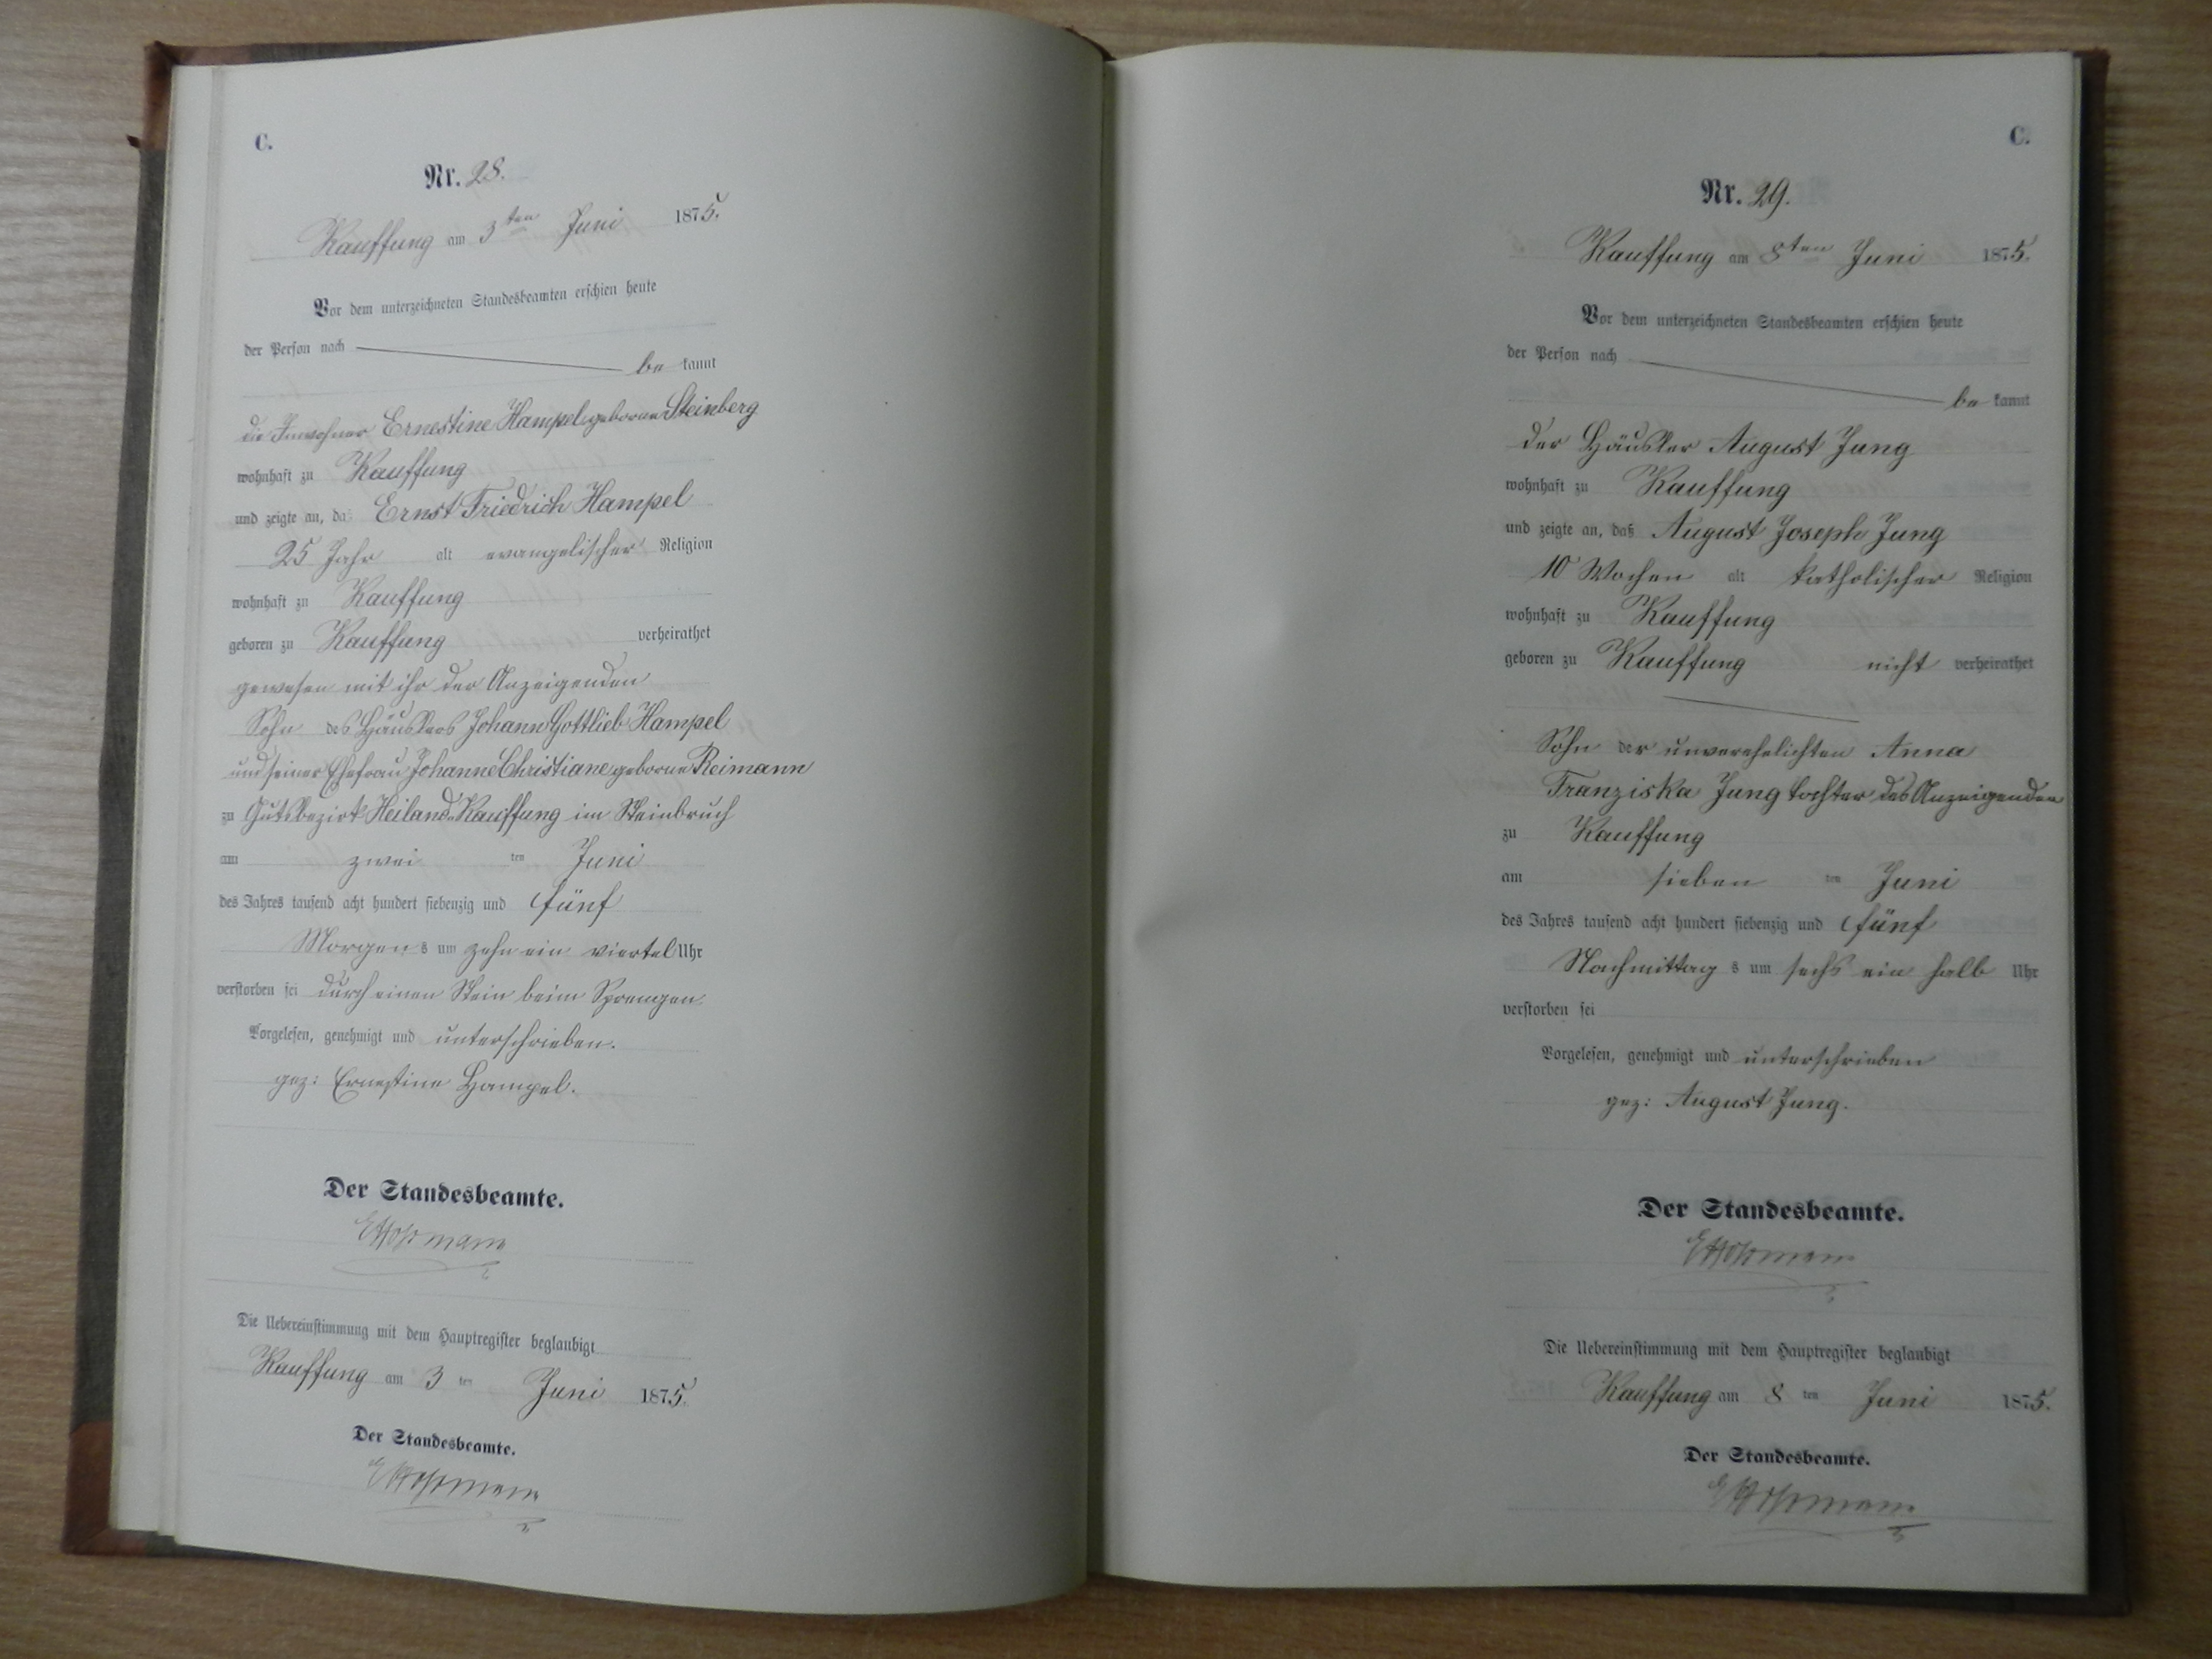 C.
Nr. 28.
Kauffung am 3ten Juni 1875.
Vor dem unterzeichneten Standesbeamten erschien heute
der Person nach
be kannt
die Inwohner Ernestine Hampel geborne Steinberg
wohnhaft zu Kauffung
und zeigte an, daß Ernst Friedrich Hampel
25 Jahr alt evangelischer Religion
wohnhaft zu Kauffung
geboren zu Kauffung verheirathet
gewesen mit ihr der Anzeigenden
Sohn des Häuslers Johann Gottlieb Hampel
und seiner Ehefrau Johanne Christiane geborne Reimann
zu Gutsbezirk Heiland-Kauffung im Steinbruch
am zwei ten Juni
des Jahres tausend acht hundert siebenzig und fünf
Morgen s um zehn ein viertel Uhr
verstorben sei durch einen Stein beim Sprengen.
Vorgelesen, genehmigt und unterschrieben.
gez: Ernestine Hampel.
Der Standesbeamte.
Die Uebereinstimmung mit dem Hauptregister beglaubigt
Kauffung am 3 ten Juni 1875.
Der Standesbeamte.
C.
Nr. 29.
Kauffung am 8ten Juni 1875.
Vor dem unterzeichneten Standesbeamten erschien heute
der Person nach
be kannt
der Häusler August Jung
wohnhaft zu Kauffung
und zeigte an, daß August Joseph Jung
10 Wochen alt katholischer Religion
wohnhaft zu Kauffung
geboren zu Kauffung nicht verheirathet
Sohn der unverehelichten Anna
Franziska Jung tochter des Anzeigenden
zu Kauffung
am sieben ten Juni
des Jahres tausend acht hundert siebenzig und fünf
Nachmittag s um sechs ein halb Uhr
verstorben sei
Vorgelesen, genehmigt und unterschrieben
gez: August Jung.
Der Standesbeamte.
Die Uebereinstimmung mit dem Hauptregister beglaubigt
Kauffung am 8 ten Juni 1875.
Der Standesbeamte.